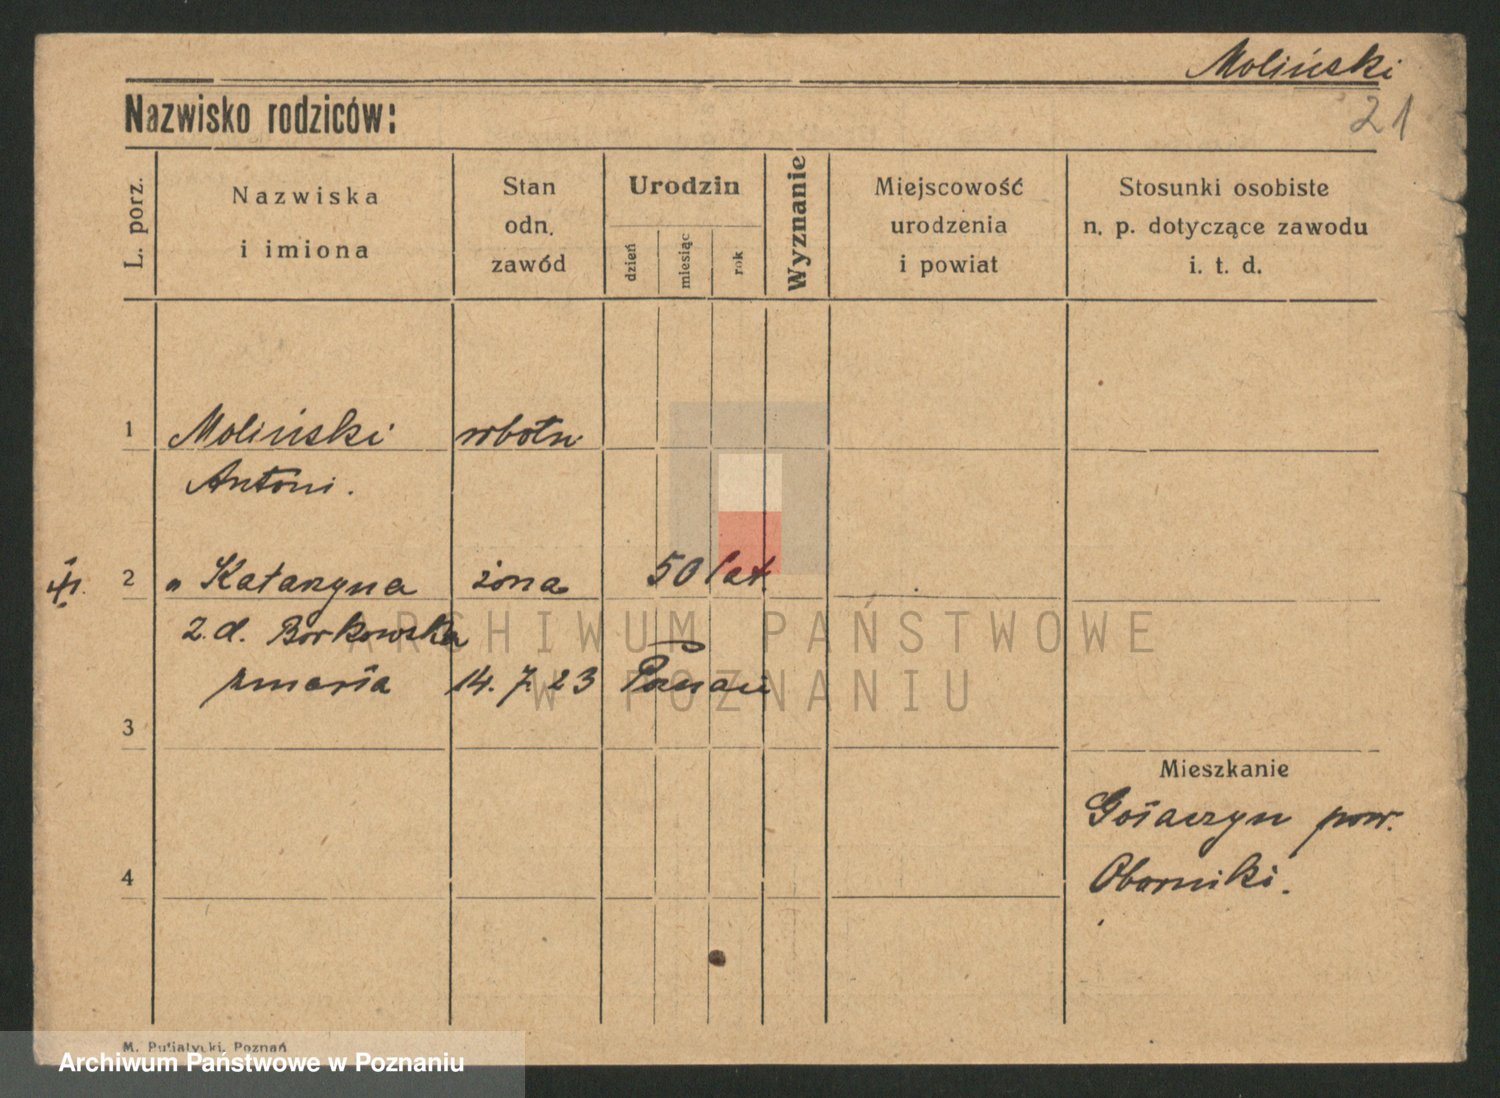 Moliński
21
Nazwisko rodziców:
L. porz.
Nazwiska
i imiona
Stan
odn.
zawód
Urodzin
dzień
miesiąc
rok
Wyznanie
Miejscowość
urodzenia
i powiat
Stosunki osobiste
n. p. dotyczące zawodu
i. t. d.
1 Moliński robotn.
Antoni.
2 „ Katarzyna żona 50 lat.
z. d. Borkowska
zmarła 14. 7. 23 Poznań
3
Mieszkanie
pow.
4
Oborniki.
M. Putiatycki, Poznań
ARCHIWUM PAŃSTWOWE
W POZNANIU
Archiwum Państwowe w Poznaniu